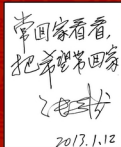 常回家看看,
把希望带回家
2013.1.12